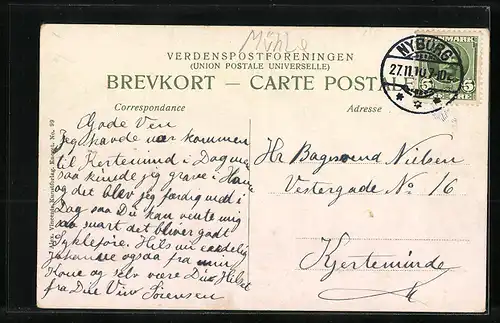 Mühle
VERDENSPOSTFORENINGEN
(UNION POSTALE UNIVERSELLE)
BREVKORT — CARTE POSTALE
NYBORG
27.11.10
DANMARK
5 5
Correspondance
Adresse
Gode Ven
Jeg havde nær kommen
til Kertemind i Dag
saa kunde jeg grave i
og det blev jeg færdig med i
Dag saa Du kan vente mig
saa snart det bliver godt
Cykleføre. Hils
Johanne ogsaa fra min
Kone og selv være Du Hilset
fra Din Ven Sörensen
Hr Nielsen
Vestergade No 16
Kjerteminde
No. 99